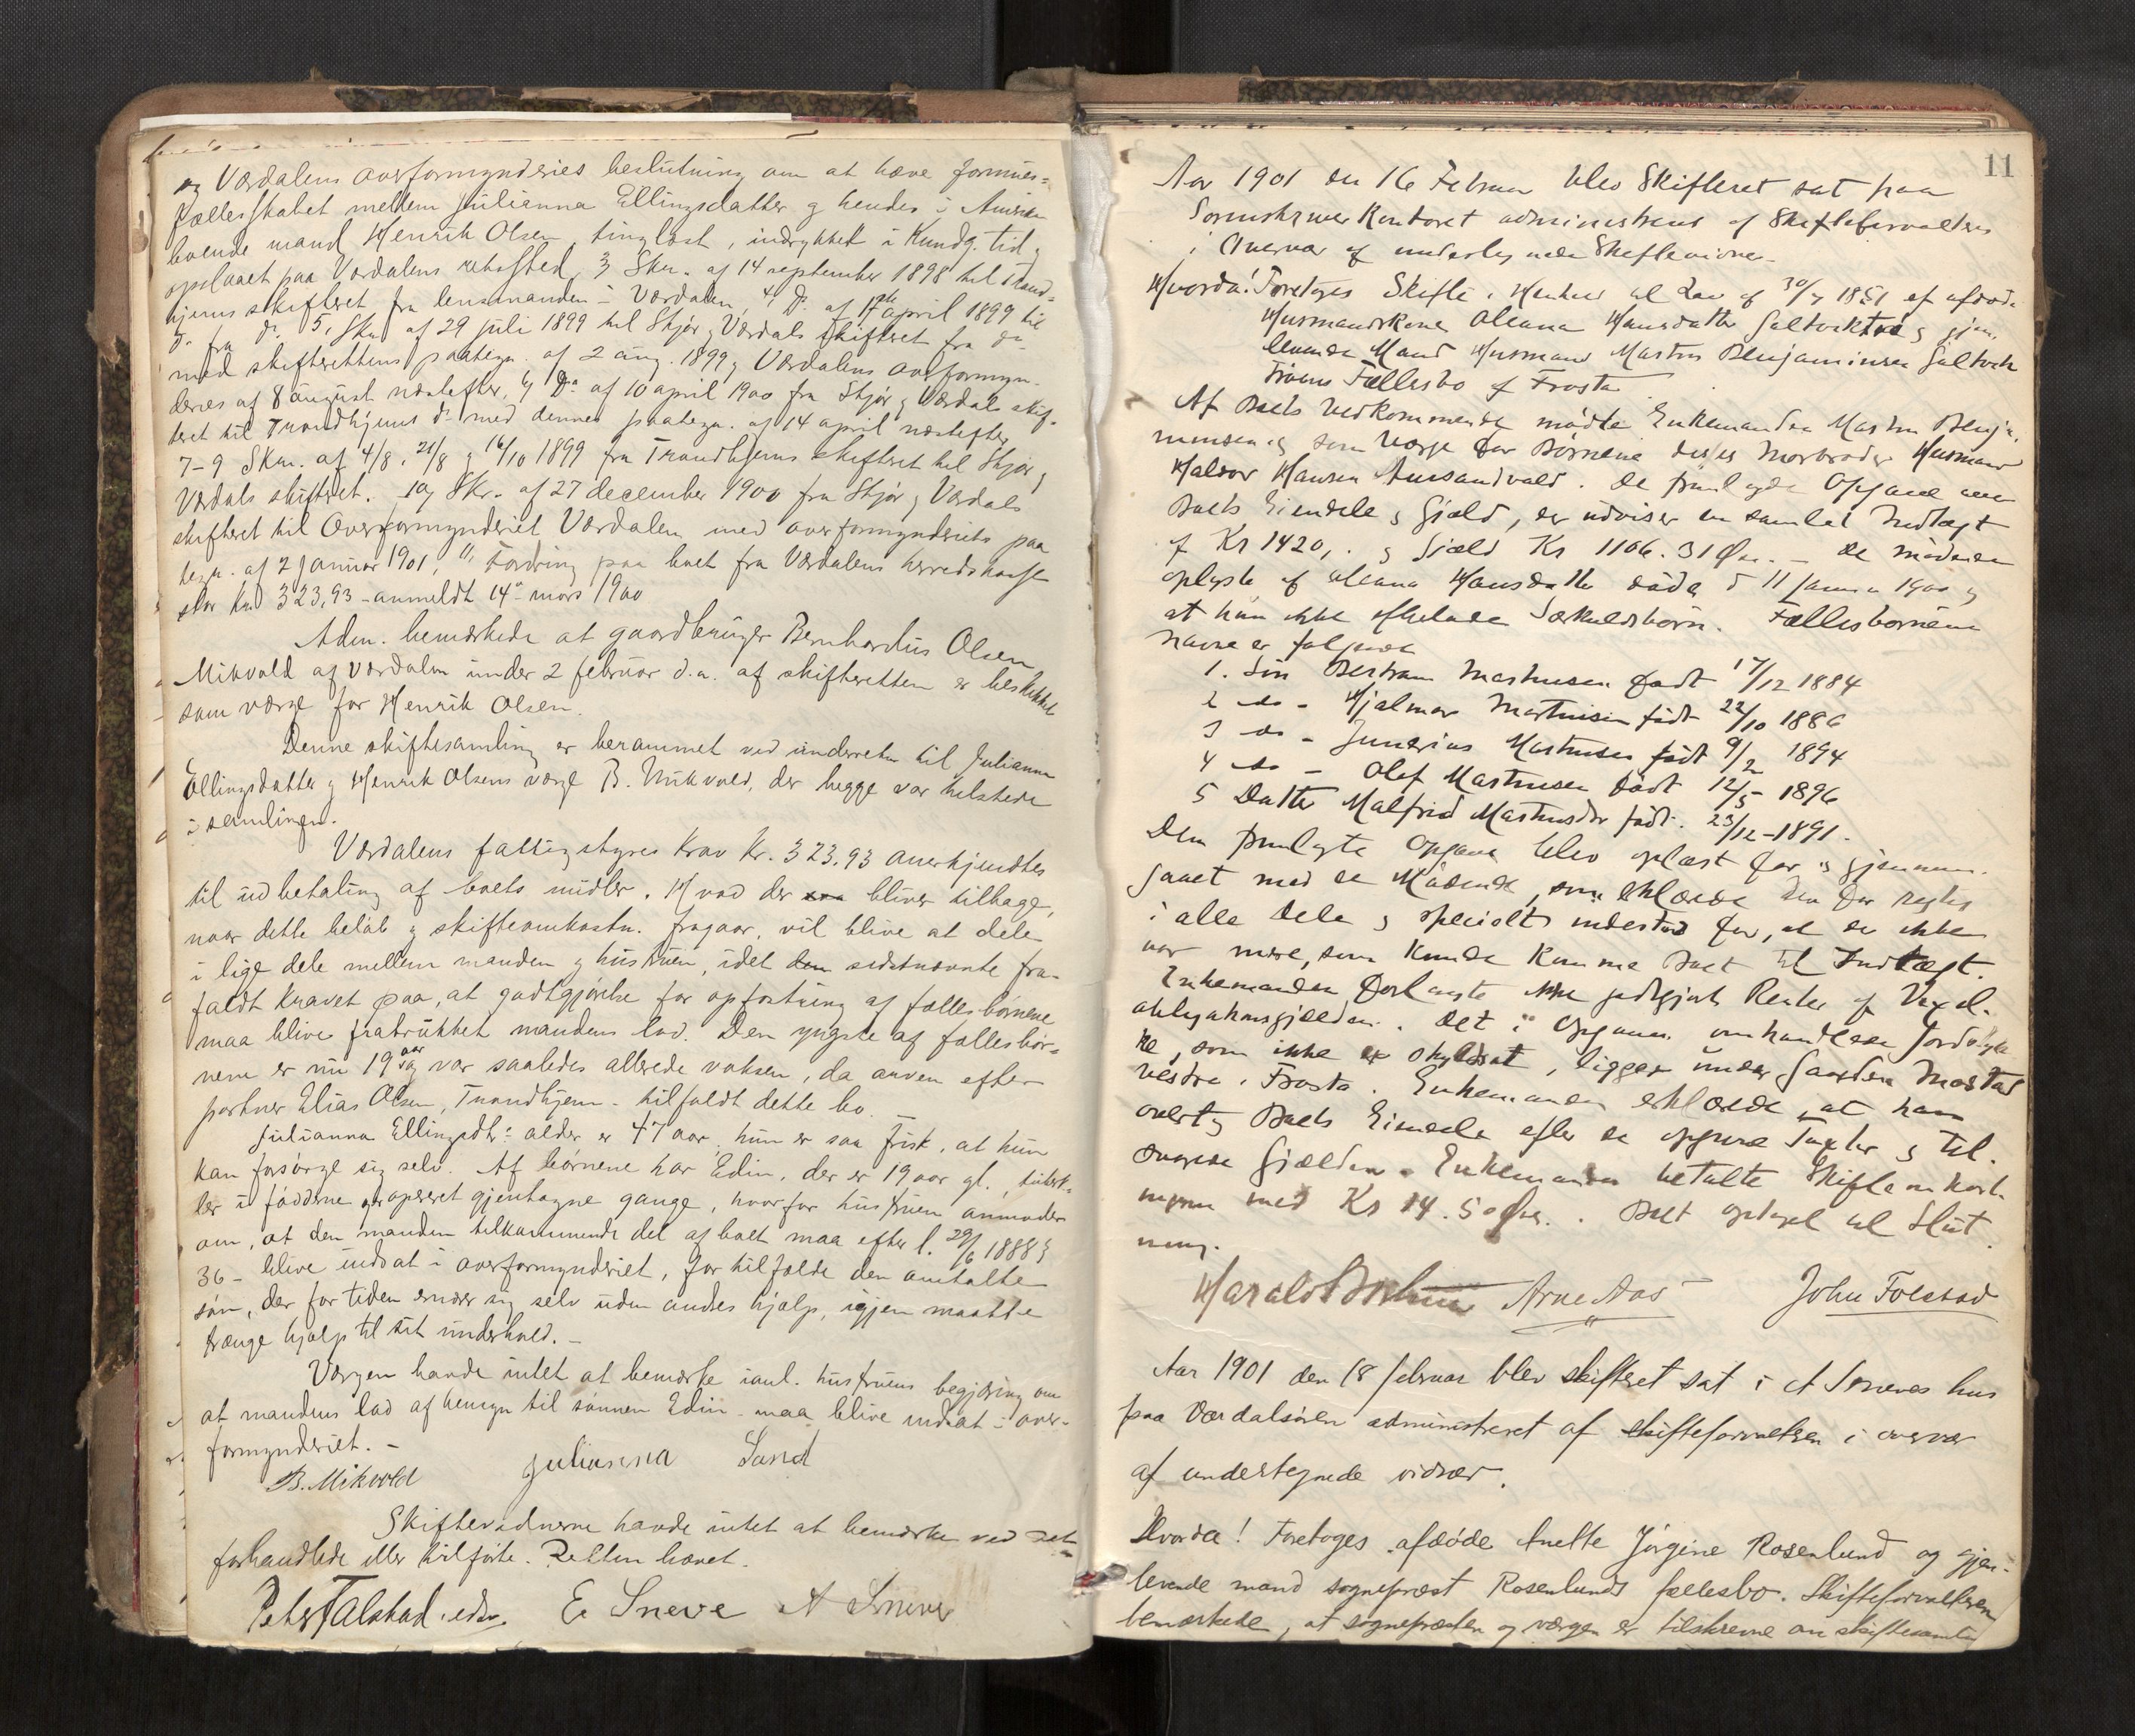 og Værdalens overformynderies beslutning om at hæve formues=
fællesskabet mellem Julianna Ellingsdatter og hendes i Amerika
boende mand Henrik Olsen tinglæst, indrykket i Kundg. tid. og
opslaaet paa Værdalens retssted, 3, Skr. af 14 september 1898 til Trond=
hjems skifteret fra lensmanden i Værdalen, 4, Do. af 17de april 1899 til
do. fra do. 5, Skr. af 29 juli 1899 til Stjør og Værdals skifteret fra do
med skifterettens paategn. af 2 aug. 1899 og Værdalens overformyn-
deries af 8 august næstefter, 6, Do. af 10 april 1900 fra Stjør og Værdals skif-
teret til Trondhjems do. med dennes paategn. af 14 april næstefter
7-9 Skr. af 4/8, 21/8 og 16/10 1899 fra Trondhjems skifteret til Stjør og
Værdals skifteret. 10, Skr. af 27 december 1900 fra Stjør og Værdals
skifteret til Overformynderiet Værdalen med overformynderiets paa
tegn. af 2 januar 1901, 11, Fordring paa boet fra Værdalens herredskasse
stor Kr. 323,93 - anmeldt 14de mars 1900
Adm. bemærkede at gaardbruger Bernhardus Olsen
Mikvold af Værdalen under 2 februar d.a. af skifteretten er beskikket
som værge for Henrik Olsen.
Denne skiftesamling er berammet ved underretn. til Julianna
Ellingsdatter og Henrik Olsens værge B. Mikvold, der begge var tilstede
i samlingen.
Værdalens fattigstyres krav kr. 323.93 anerkjendtes
til udbetaling af boets midler. Hvad der bliver tilbage,
naar dette beløb og skifteomkostn. fragaar, vil blive at dele
i lige dele mellem manden og hustruen, idet sidstnævnte fra-
faldt kravet paa, at godtgjørelse for opfostring af fællesbørnene
maa blive fratrukket mandens lod. Den yngste af fællesbør-
nene er nu 19 aar og var saaledes allerede voksen, da arven efter
partner Elias Olsen, Trondhjem - tilfaldt dette bo. -
Julianna Ellingsdtrs alder er 47 aar, hun er saa frisk, at hun
kan forsørge sig selv. Af børnene har Edin, der er 19 aar gl., tuberk-
ler i fødderne og opereret gjentagne gange, hvorfor hustruen anmoder
om, at den manden tilkommende del af boet maa efter l. 29/6 1888 §
36 - blive indsat i overformynderiet, for tilfælde den omtalte
søn, der for tiden ernærer sig selv uden andres hjælp, igjen maatte
trænge hjælp til sit underhold. -
Værgen havde intet at bemærke ianl. hustruens begjæring om
at mandens lod af hensyn til sønnen Edin - maa blive indsat i over-
formynderiet. -
B. Mikvold Julianna Sand
Skiftevidnerne havde intet at bemærke ved det
forhandlede eller tilførte. Retten hævet.
E Sneve A Sneve
11
Aar 1901 den 16 Februar blev Skifteret sat paa
Sorenskriver Kontoret administreret af Skifteforvalteren
i Overvær af undertegnede Skiftevidner.
Hvorda! Foretoges Skifte i Henhold til Lov af 30/7 1851 af afdøde
Husmandskone Oleana Hansdatter Saltviktrø og gjen-
levende Mand Husmand Martin Benjaminsen Saltvik
trøens Fællesbo af Frosta.
Af Boets Vedkommende mødte Enkemanden Martin Benja-
minsen og som Værge for Børnene deres Morbroder Husmand
Halvor Hansen Aursandvald. De fremlagde Opgave over
Boets Eiendele og Gjæld, der udviser en samlet Indtægt
af Kr 1420, . og Gjæld Kr 1106. 31 Øre. - De mødende
oplyste at Oleana Hansdatter døde d 11 Januar 1900 og
at hun ikke efterlod Særkuldsbørn. Fællesbørnenes
Navne er følgende
1. Søn Bertram Martinsen født 17/12 1884
2 do - Hjalmar Martinsen født 22/10 1886
3 do - Martinsen født 9/2 1894
4 do - Olaf Martinsen født 12/5 - 1896
5 Datter Malfrid Martinsdtr født. 23/12 - 1891.
Den fremlagte Opgave blev oplæst for og gjennem-
gaaet med de Mødende, som erklærede den for rigtig
i alle Dele og specielt indestod for, at der ikke
var mere, som kunde komme Boet til Indtægt.
Enkemanden forlangte ikke godtgjort Renter af Vexel-
obligationsgjælden. Det i Opgaven omhandlede Jordstyk-
ke, som ikke er skyldsat, ligger under Gaarden Mostad
vestre i Frosta. Enkemanden erklærede, at han
overtog Boets Eiendele efter de opgivne Taxter og til-
svarede Gjælden. Enkemanden betalte Skifteomkost-
ningerne med Kr 14. 50 Øre. Boet optaget til Slut-
ning.
Arne Aas John Folstad
Aar 1901 den 18 februar blev skifteret sat i A Sneves hus
paa Værdalsøren administreret af skifteforvalteren i overvær
af undertegnede vidner.
Hvorda! Foretoges afdøde Anette Jørgine Rosenlund og gjen-
levende mand sogneprest Rosenlunds fællesbo. Skifteforvalteren
bemærkede, at sognepræsten og værgen er tilskrevne om skiftesamling